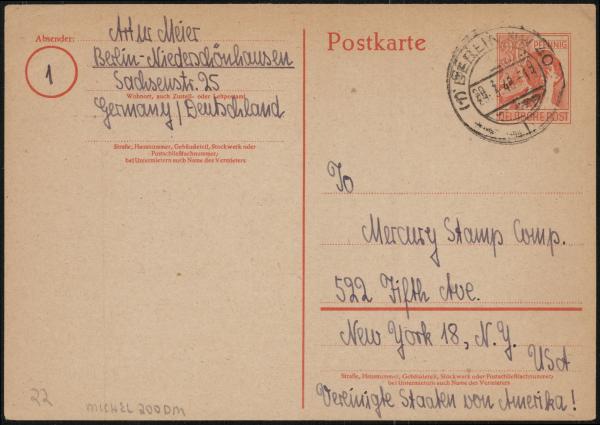 Absender:
Artur Meier
Berlin-Niederschönhausen
Sachsenstr. 25
Wohnort, auch Zustell- oder Leitpostamt
Germany/Deutschland
Straße, Hausnummer, Gebäudeteil, Stockwerk oder
Postschließfachnummer;
bei Untermietern auch Name des Vermieters
1
Postkarte
PFENNIG
DEUTSCHE POST
To
Mercury Stamp Comp.
522 Fifth Ave.
New York 18, N.Y.
USA
Straße, Hausnummer, Gebäudeteil, Stockwerk oder Postschließfachnummer;
bei Untermietern auch Name des Vermieters
Vereinigte Staaten von Amerika!
22
MICHEL 200DM